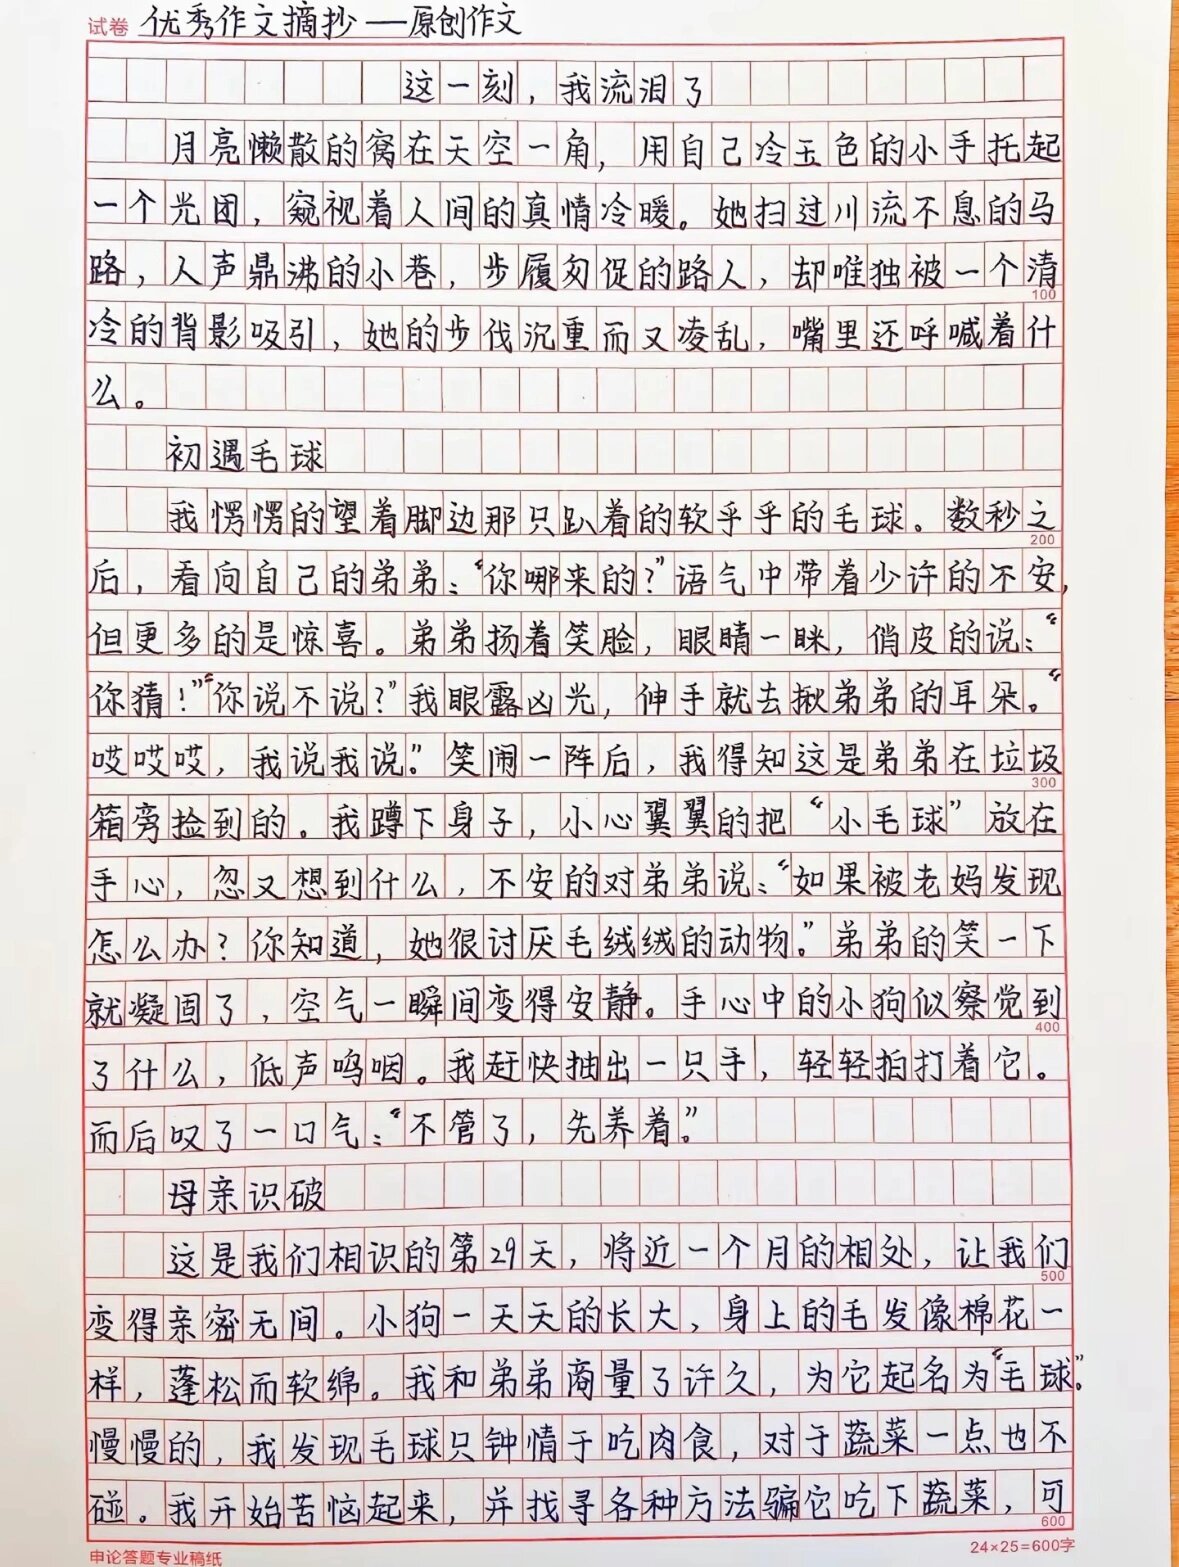 试卷 优秀作文摘抄—原创作文
这一刻，我流泪了
月亮懒散的窝在天空一角，用自己冷玉色的小手托起
一个光团，窥视着人间的真情冷暖。她扫过川流不息的马
路，人声鼎沸的小巷，步履匆促的路人，却唯独被一个清
100
冷的背影吸引，她的步伐沉重而又凌乱，嘴里还呼喊着什
么。
初遇毛球
我愣愣的望着脚边那只趴着的软乎乎的毛球。数秒之
200
后，看向自己的弟弟：“你哪来的？”语气中带着少许的不安，
但更多的是惊喜。弟弟扬着笑脸，眼睛一眯，俏皮的说：“
你猜！”“你说不说？”我眼露凶光，伸手就去揪弟弟的耳朵。“
哎哎哎，我说我说。”笑闹一阵后，我得知这是弟弟在垃圾
300
箱旁捡到的。我蹲下身子，小心翼翼的把“小毛球”放在
手心，忽又想到什么，不安的对弟弟说：“如果被老妈发现
怎么办？你知道，她很讨厌毛绒绒的动物。”弟弟的笑一下
就凝固了，空气一瞬间变得安静。手心中的小狗似察觉到
400
了什么，低声呜咽。我赶快抽出一只手，轻轻拍打着它。
而后叹了一口气：“不管了，先养着。”
母亲识破
这是我们相识的第29天，将近一个月的相处，让我们
500
变得亲密无间。小狗一天天的长大，身上的毛发像棉花一
样，蓬松而软绵。我和弟弟商量了许久，为它起名为“毛球。”
慢慢的，我发现毛球只钟情于吃肉食，对于蔬菜一点也不
碰。我开始苦恼起来，并找寻各种方法骗它吃下蔬菜，可
600
申论答题专业稿纸
24×25=600字